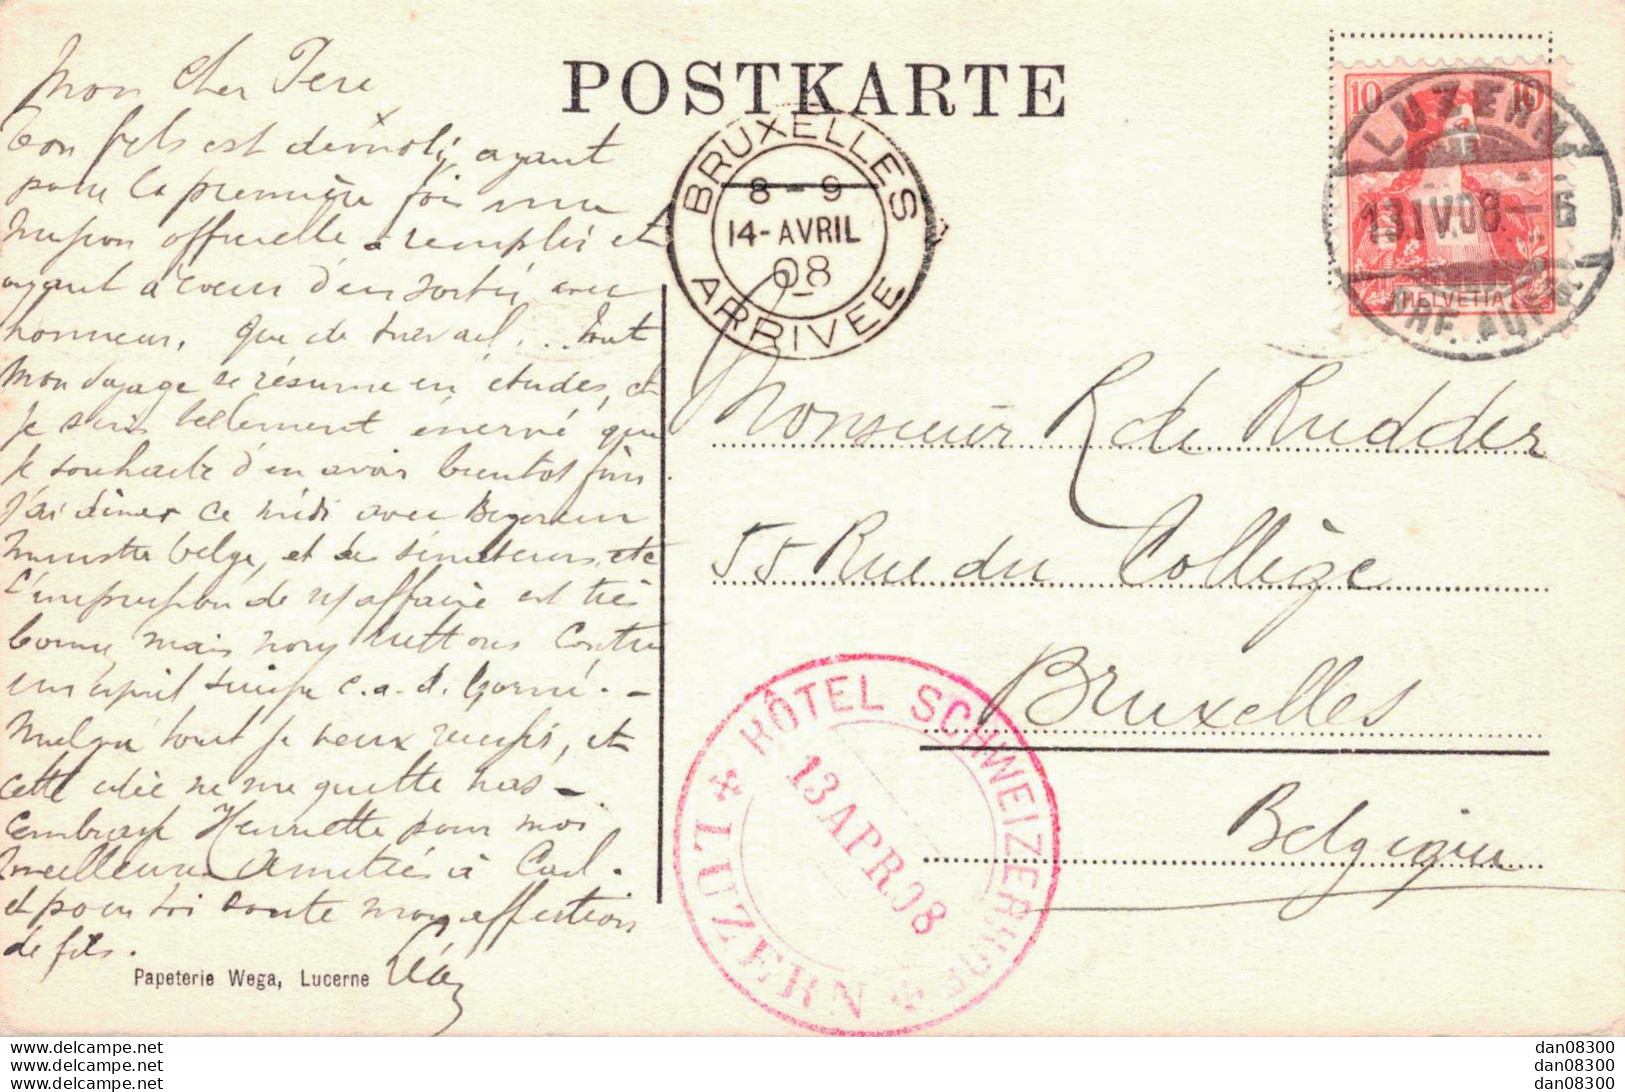 POSTKARTE
Mon Cher Pere
Ton fils est démoli, ayant
pour la première fois une
mission officielle à remplir et
ayant à coeur d'en sortir avec
honneur, que de travail... tout
mon voyage se résume en études, et
je suis tellement énervé que
je souhaite d'en avoir bientot fini.
J'ai dîner ce midi avec
ministre belge, et des sénateurs, etc
L'impression de affaire est très
bonne, mais nous luttons contre
un esprit suisse c.a.d. borné. -
Malgré tout je veux reussir, et
cette idée ne me quitte pas -
Embrasse Henriette pour moi
meilleures amitiés à Carl.
et pour toi toute mon affection
de fils.
Léo
Papeterie Wega, Lucerne
BRUXELLES
8-9
14-AVRIL
08
ARRIVEE
10 10
HELVETIA
LUZERN
13.IV.08.-6
BRF. AUFG.
Monsieur R de Rudder
55 Rue du Collège
Bruxelles
Belgique
HÔTEL SCHWEIZERHOF
13 APR 08
LUZERN
www.delcampe.net
www.delcampe.net
www.delcampe.net
dan08300
dan08300
dan08300